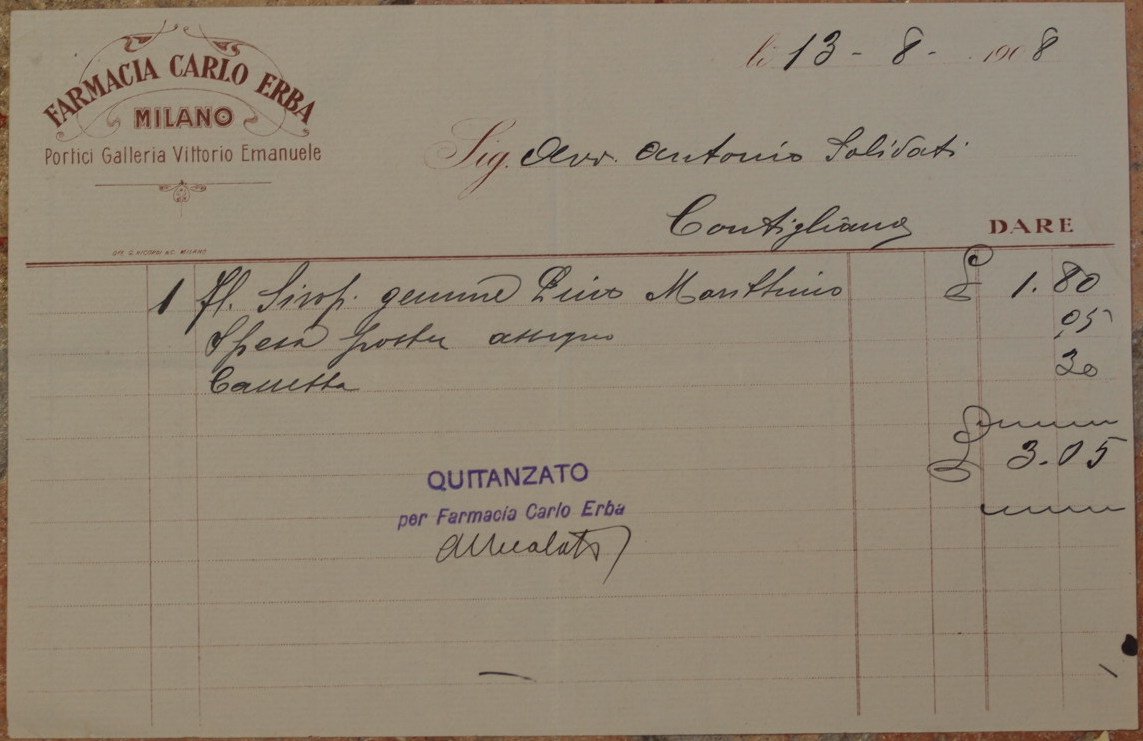 FARMACIA CARLO ERBA
MILANO
Portici Galleria Vittorio Emanuele
OFF. G. RICORDI & C. MILANO
li 13 - 8 - 1908
Sig. Avv. Antonio Solidati
Contigliano
DARE
1 Fl. Sirop. gemme Pino Marittimo £ 1.80
Spesa posta assegno .95
Cassetta 30
£ 3.05
QUITANZATO
per Farmacia Carlo Erba